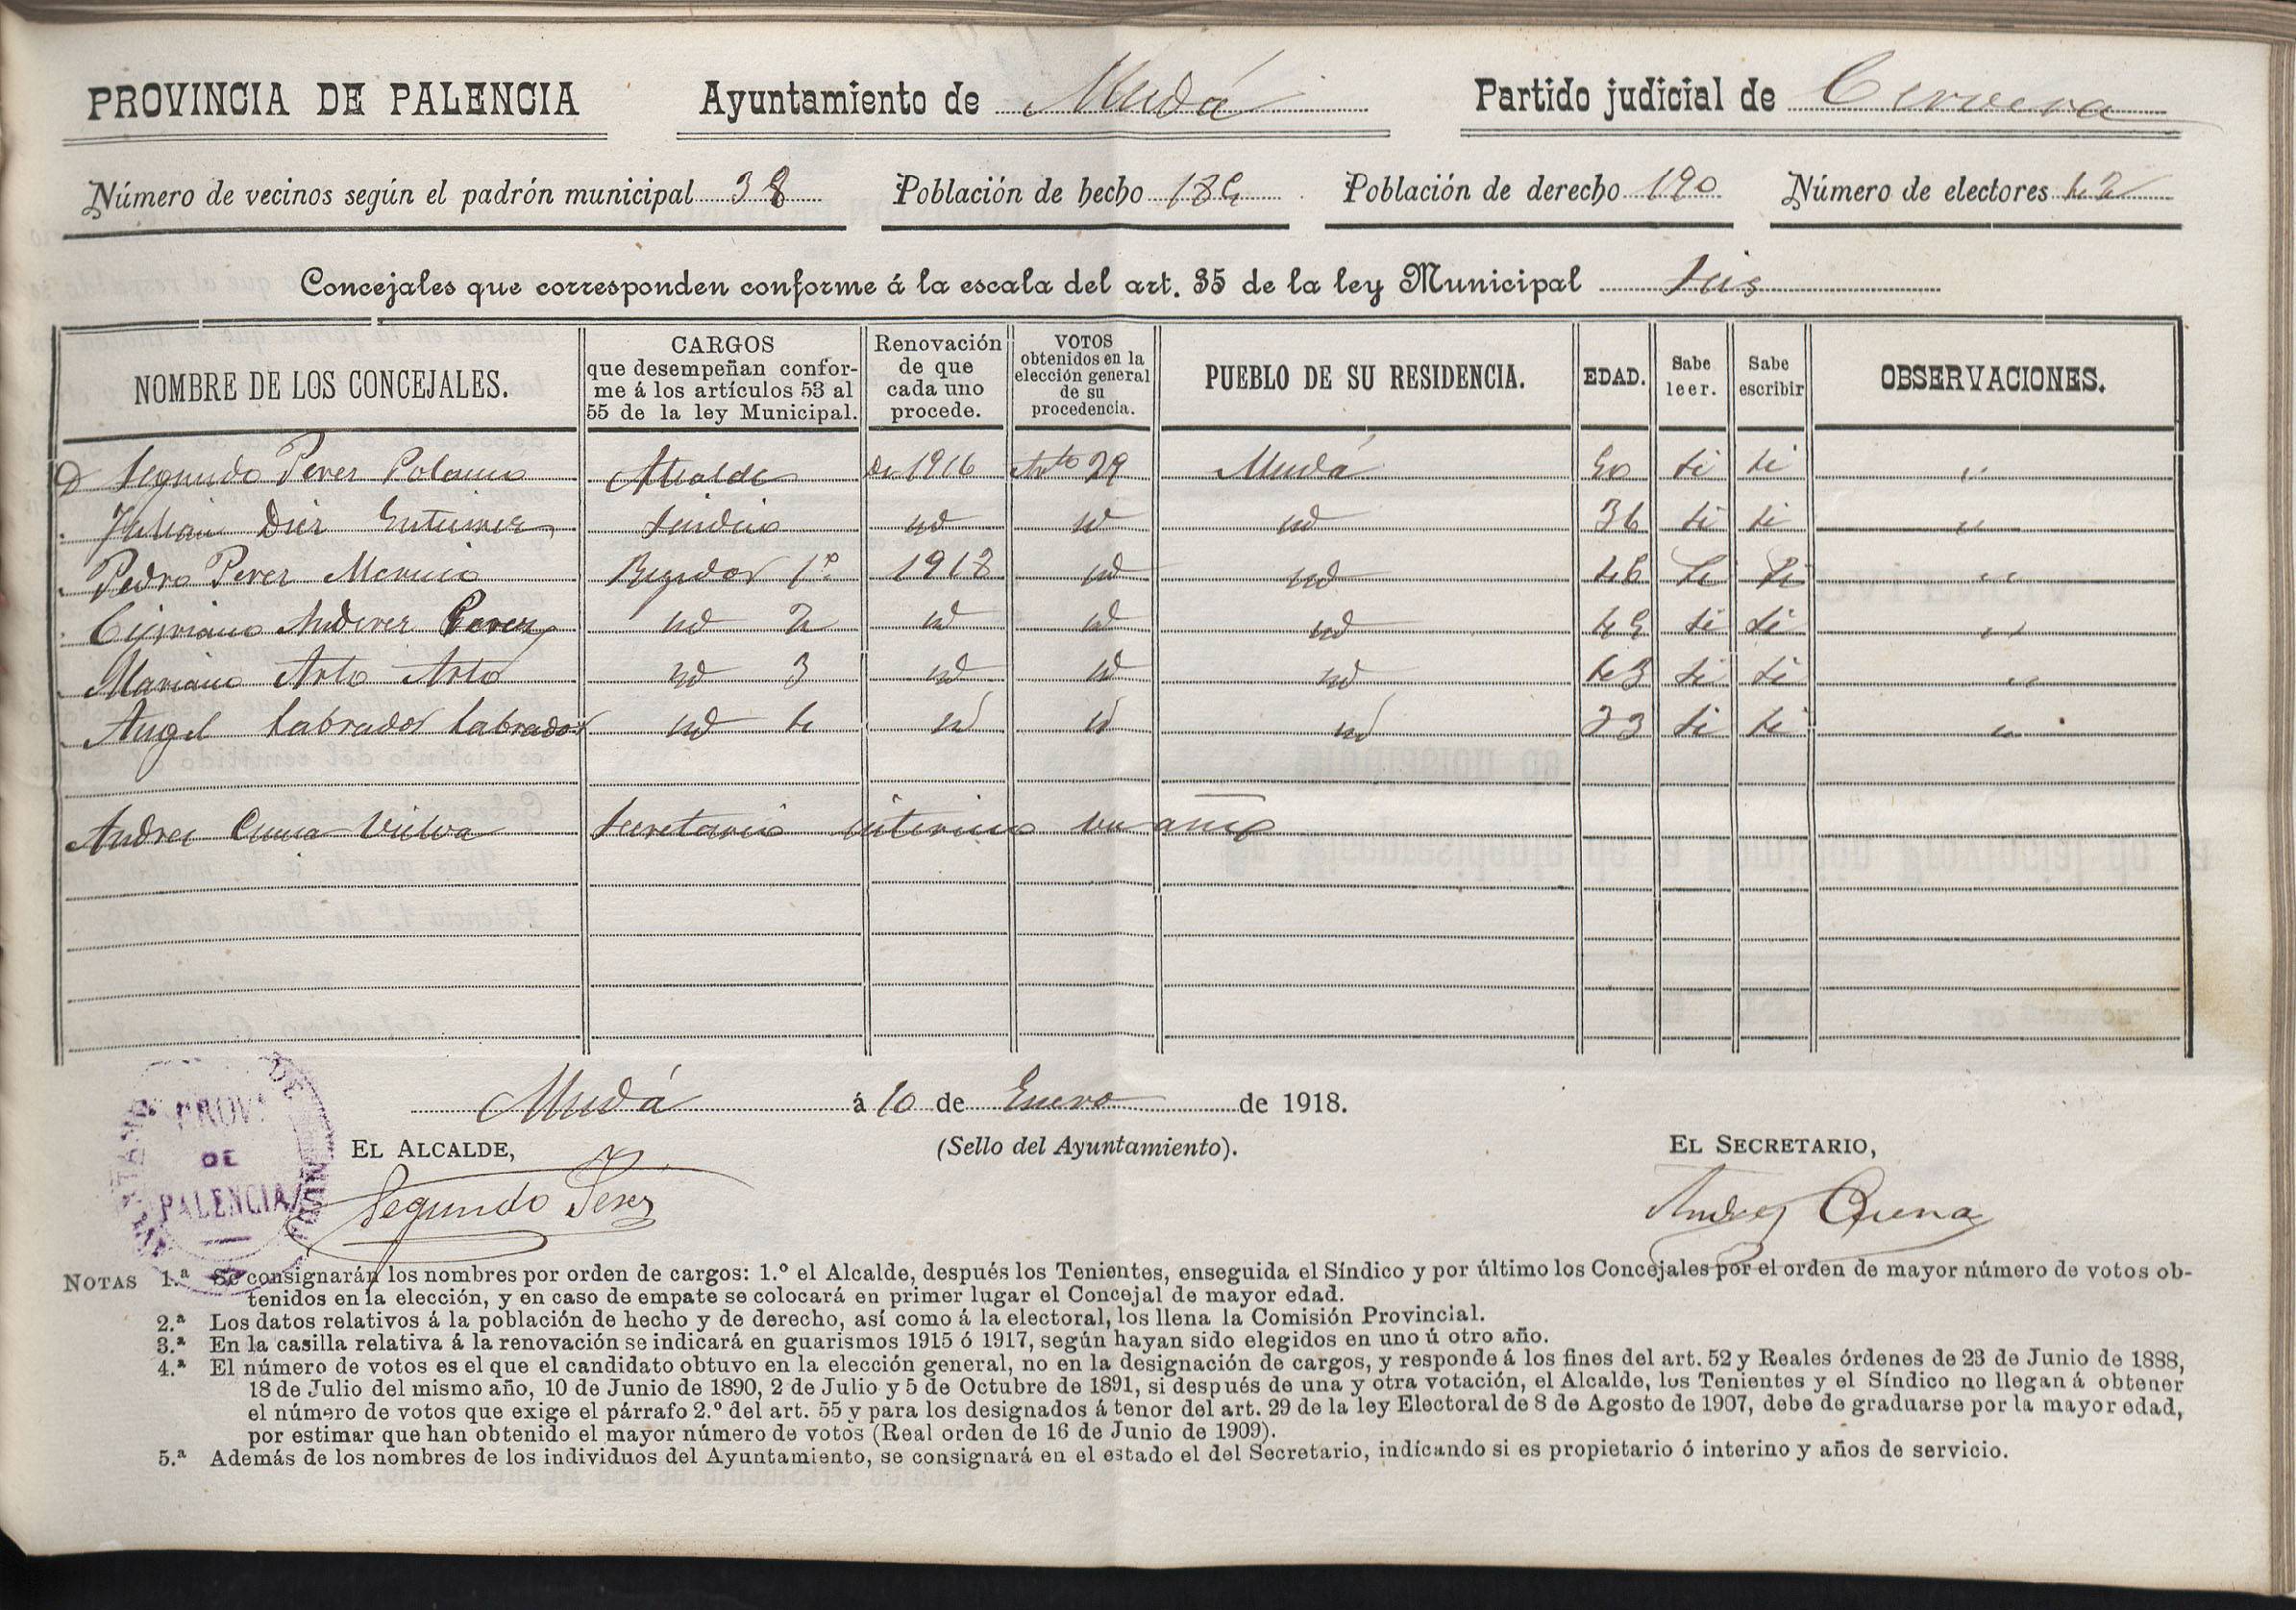 PROVINCIA DE PALENCIA Ayuntamiento de Mudá Partido judicial de Cervera
Número de vecinos según el padrón municipal 38 Población de hecho 185 Población de derecho 190 Número de electores 42
Concejales que corresponden conforme á la escala del art. 35 de la ley Municipal Seis
NOMBRE DE LOS CONCEJALES. CARGOS que desempeñan conforme á los artículos 53 al 55 de la ley Municipal. Renovación de que cada uno procede. VOTOS obtenidos en la elección general de su procedencia. PUEBLO DE SU RESIDENCIA. EDAD. Sabe leer. Sabe escribir OBSERVACIONES.
D Segundo Perez Polanco Alcalde de 1916 Arto 29 Mudá 50 si si "
Julian Diez Gutierrez Sindico id id id 36 si si "
Pedro Perez Merino Regidor 1º 1918 id id 46 si si "
Cipriano Andrez Perez id 2 id id id 45 si si "
Mariano Arto Arto id 3 id id id 43 si si "
Angel Labrador Labrador id 4 id id id 33 si si "
Andres Cuena Vielva Secretario interino un año
Mudá á 10 de Enero de 1918.
EL ALCALDE, (Sello del Ayuntamiento). EL SECRETARIO,
PROV. DE PALENCIA
Segundo Perez Andres Cuena
NOTAS 1.ª Se consignarán los nombres por orden de cargos: 1.º el Alcalde, después los Tenientes, enseguida el Síndico y por último los Concejales por el orden de mayor número de votos ob-
tenidos en la elección, y en caso de empate se colocará en primer lugar el Concejal de mayor edad.
2.ª Los datos relativos á la población de hecho y de derecho, así como á la electoral, los llena la Comisión Provincial.
3.ª En la casilla relativa á la renovación se indicará en guarismos 1915 ó 1917, según hayan sido elegidos en uno ú otro año.
4.ª El número de votos es el que el candidato obtuvo en la elección general, no en la designación de cargos, y responde á los fines del art. 52 y Reales órdenes de 23 de Junio de 1888,
18 de Julio del mismo año, 10 de Junio de 1890, 2 de Julio y 5 de Octubre de 1891, si después de una y otra votación, el Alcalde, los Tenientes y el Síndico no llegan á obtener
el número de votos que exige el párrafo 2.º del art. 55 y para los designados á tenor del art. 29 de la ley Electoral de 8 de Agosto de 1907, debe de graduarse por la mayor edad,
por estimar que han obtenido el mayor número de votos (Real orden de 16 de Junio de 1909).
5.ª Además de los nombres de los individuos del Ayuntamiento, se consignará en el estado el del Secretario, indicando si es propietario ó interino y años de servicio.